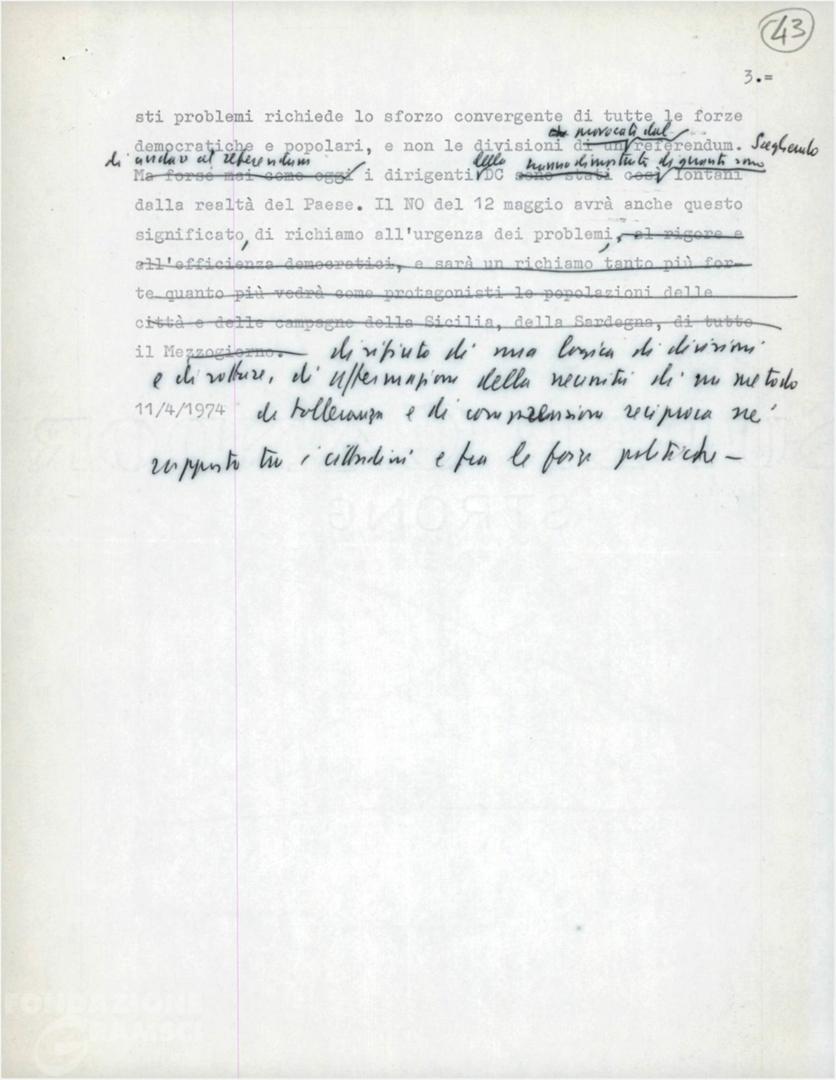 43
3.=
sti problemi richiede lo sforzo convergente di tutte le forze
provocate dal
democratiche e popolari, e non le divisioni di un referendum. Scegliendo
di andare al referendum della hanno dimostrato di quanto sono
Ma forse mai come oggi i dirigenti DC sono stati così lontani
dalla realtà del Paese. Il NO del 12 maggio avrà anche questo
significato, di richiamo all'urgenza dei problemi, al rigore e
all'efficienza democratici, e sarà un richiamo, tanto più for-
te quanto più vedrà come protagonisti le popolazioni delle
città e delle campagne della Sicilia, della Sardegna, di tutto
il Mezzogiorno. di rifiuto di una logica di divisioni
e di rotture, di affermazione della necessità di un metodo
11/4/1974 di tolleranza e di comprensione reciproca ne'
rapporto tra i cittadini e fra le forze politiche –
FONDAZIONE
GRAMSCI